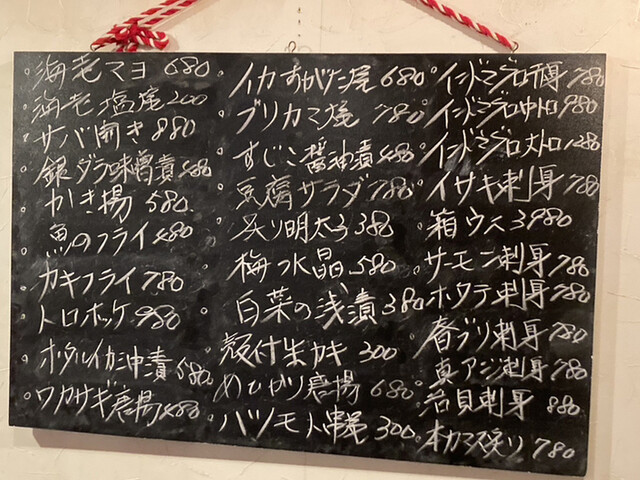 海老マヨ 680
海老塩焼 200
サバ開き 880
銀ダラ味噌漬 480
かき揚 580
魚のフライ 480
カキフライ 780
トロホッケ 980
ホタルイカ沖漬 580
ワカサギ唐揚 480
イカすがた焼 680
ブリカマ焼 780
すじこ醤油漬 480
豆腐サラダ 780
炙り明太子 380
梅水晶 580
白菜の浅漬 380
殻付生カキ 300
めひかり唐揚 680
ハツモト串焼 300
インドマグロ刺身 780
インドマグロ中トロ 980
インドマグロ大トロ 1280
イサキ刺身 780
箱ウニ 3980
サーモン刺身 780
ホタテ刺身 780
春ブリ刺身 780
真アジ刺身 780
活貝刺身 880
本カマス炙り 780